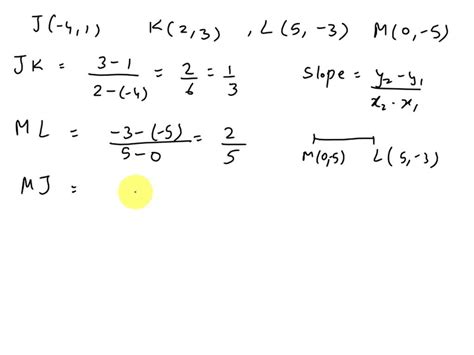 J(-4,1)   K(2,3) , L(5, -3)   M(0,-5)
JK = 3-1 / 2-(-4) = 2/6 = 1/3   Slope = y2-y1 / x2-x1
ML = -3-(-5) / 5-0 = 2/5
M(0,5)   L(5,-3)
MJ =